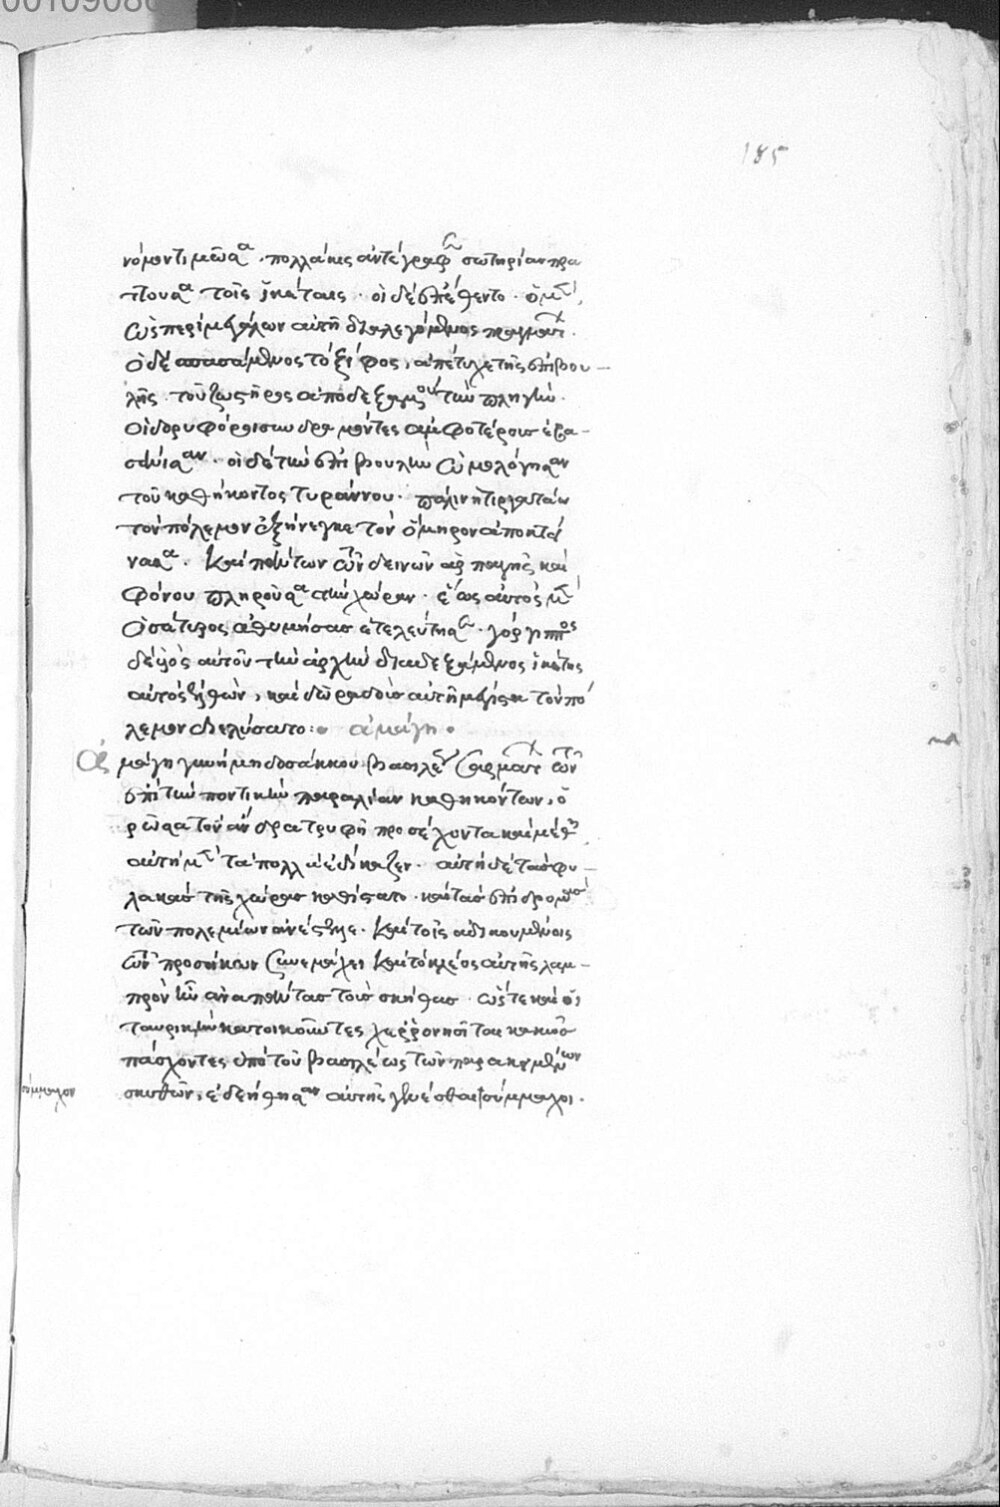 00109080
185
νόμον τιμῶσα . πολλάκις ἀντέγραφεν σωτηρίαν πρά
ττουσα τοῖς ἱκέταις . οἱ δὲ ἐπέθεντο . ὁ μὲν
ὡς περὶ μεγάλων αὐτῇ διαλεγόμενος πραγμάτων .
ὁ δὲ σπασάμενος τὸ ξίφος, ἀπέτυχε τῆς ἐπιβου-
λῆς τοῦ ζωστῆρος ἀποδεξαμένου τὴν πληγὴν .
οἱ δορυφόροι συνδραμόντες ἀμφοτέρους ἐβα-
σάνισαν . οἱ δὲ τὴν ἐπιβουλὴν ὡμολόγησαν
τοῦ καθήκοντος τυράννου . πάλιν ἡ τιργαταὼ
τὸν πόλεμον ἐξήνεγκε τὸν ὅμηρον ἀποκτεί
νασα . καὶ πάντων τῶν δεινῶν ἁρπαγῆς καὶ
φόνου πληροῦσα τὴν χώραν . ἕως αὐτὸς μὲν
ὁ σάτυρος ἀθυμήσας ἐτελεύτησεν . γόργιππος
δὲ υἱὸς αὐτοῦ τὴν ἀρχὴν διαδεξάμενος ἱκέτης
αὐτὸς ἐλθὼν, καὶ δῶρα δοὺς αὐτῇ μέγιστα τὸν πό
λεμον διελύσατο : ἀμάγη
ἀμάγη γυνὴ μηδοσάκκου βασιλέως σαρματῶν τῶν
ἐπὶ τὴν ποντικὴν παραλίαν καθηκόντων, ὁ
ρῶσα τὸν ἄνδρα τρυφῇ προσέχοντα καὶ μέθῃ
αὐτὴ μὲν τὰ πολλὰ ἐδίκαζεν . αὐτὴ δὲ τὰς φυ-
λακὰς τῆς χώρας καθίστατο . καὶ τὰς ἐπιδρομὰς
τῶν πολεμίων ἀνέστελλε . καὶ τοῖς ἀδικουμένοις
τῶν προσοίκων συνεμάχει καὶ τὸ κλέος αὐτῆς λαμ-
πρὸν ἦν ἀνὰ πάντας τοὺς σκύθας . ὥστε καὶ οἱ
ταυρικὴν κατοικοῦντες χερρονησῖται κακῶς
πάσχοντες ὑπὸ τοῦ βασιλέως τῶν παρακειμένων
σκυθῶν, ἐδεήθησαν αὐτῆς γενέσθαι σύμμαχοι .
σύμμαχον